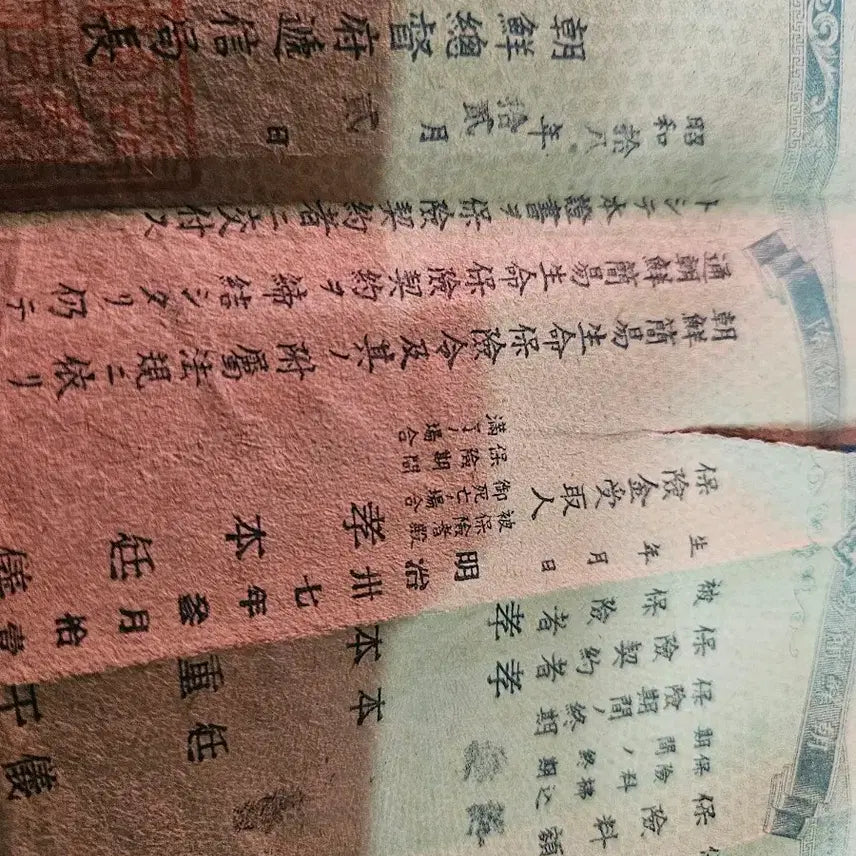 保險料額
保險料拂込
期間ノ終期
保險期間ノ終期
保險契約者 孝本任儀
被保險者 孝本重
生年月日 明治卅七年參月拾壹
保險金受取人
被保險者
死亡ノ場合 孝本任儀
保險期間
滿了ノ場合
朝鮮簡易生命保險令及其ノ附屬法規ニ依リ
通朝鮮簡易生命保險契約ヲ締結シタリ仍テ
トシテ本證書ヲ保險契約者ニ交付ス
昭和拾八年拾貳月貳日
朝鮮總督府遞信局長